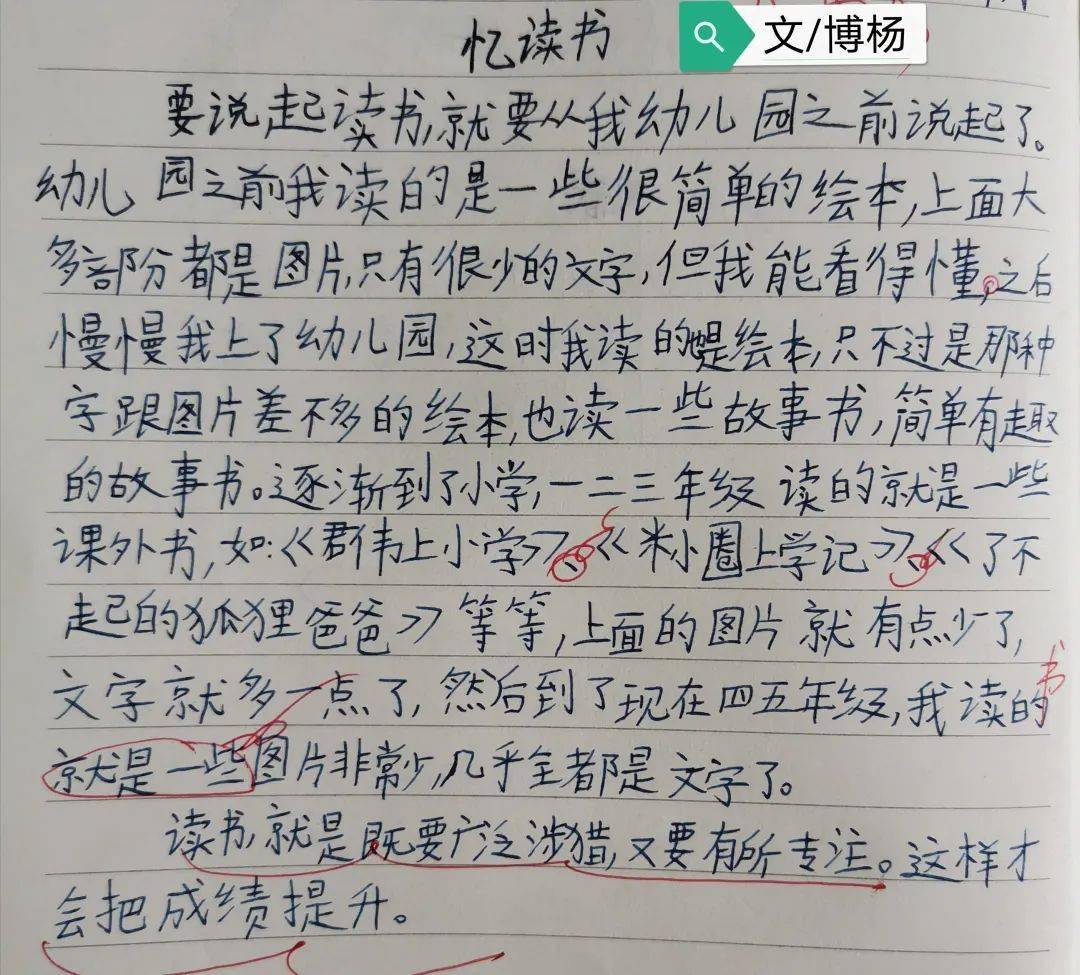 忆读书
文/博杨
要说起读书,就要从我幼儿园之前说起了。
幼儿园之前我读的是一些很简单的绘本,上面大
多部分都是图片,只有很少的文字,但我能看得懂。之后
慢慢我上了幼儿园,这时我读的是绘本,只不过是那种
字跟图片差不多的绘本,也读一些故事书,简单有趣
的故事书。逐渐到了小学,一二三年级读的就是一些
课外书,如:《君伟上小学》、《米小圈上学记》、《了不
起的狐狸爸爸》等等,上面的图片就有点少了,
文字就多一点了,然后到了现在四五年级,我读的书
就是一些图片非常少,几乎全都是文字了。
读书,就是既要广泛涉猎,又要有所专注。这样才
会把成绩提升。